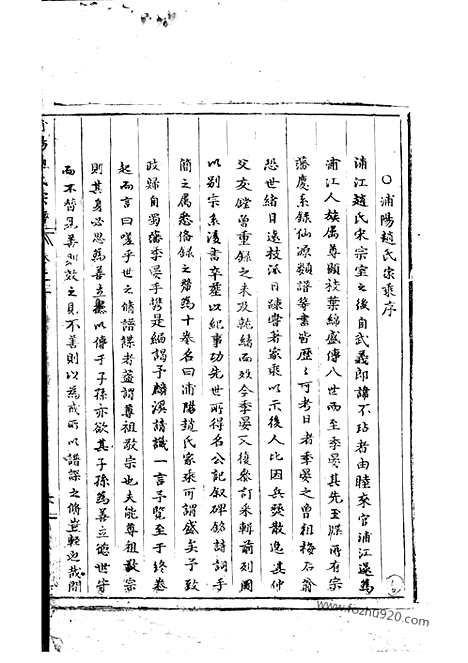 〇浦陽趙氏宗乘序
浦江趙氏宋宗室之後自武義郎諱不玷者由睦來官浦江遂為
浦江人族属尊顯枝葉綿盛傳八世而至季晏其先玉牒所有宗
藩慶系錄仙源類譜等書皆歷〻可考日者季晏之曾祖梅石翁
恐世緒日遠枝派日踈嘗著家乘以示後人比因兵燹散逸其仲
父友 嘗重録之未及就緒而歿今季晏又復參訂采輯前列圖
以别宗系後書卒塟以紀事功先世所得名公記叙碑銘詩詞手
簡之属悉俻録之 為十卷名曰浦陽趙氏家乘可謂盛矣予致
政歸自蜀藩季晏手 是編謁予麟溪請識一言予覧至于終卷
起而言曰嗟乎世之脩譜諜者盖謂尊祖敬宗也夫能尊祖敬宗
則其身必思為善 以傳于子孫亦欲其子孫為善立德世守
而不替見善則效之見不善則以為戒所以譜諜之脩豈輕也哉間
www.fozhu920.com